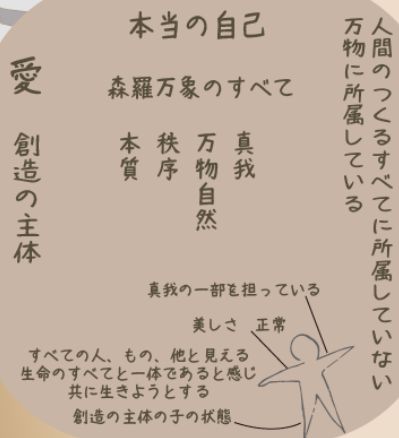 本当の自己
森羅万象のすべて
人間のつくるすべてに所属していない
万物に所属している
真我
万物自然
秩序
本質
愛　創造の主体
真我の一部を担っている
美しさ　正常
すべての人、もの、他と見える
生命のすべてと一体であると感じ
共に生きようとする
創造の主体の子の状態